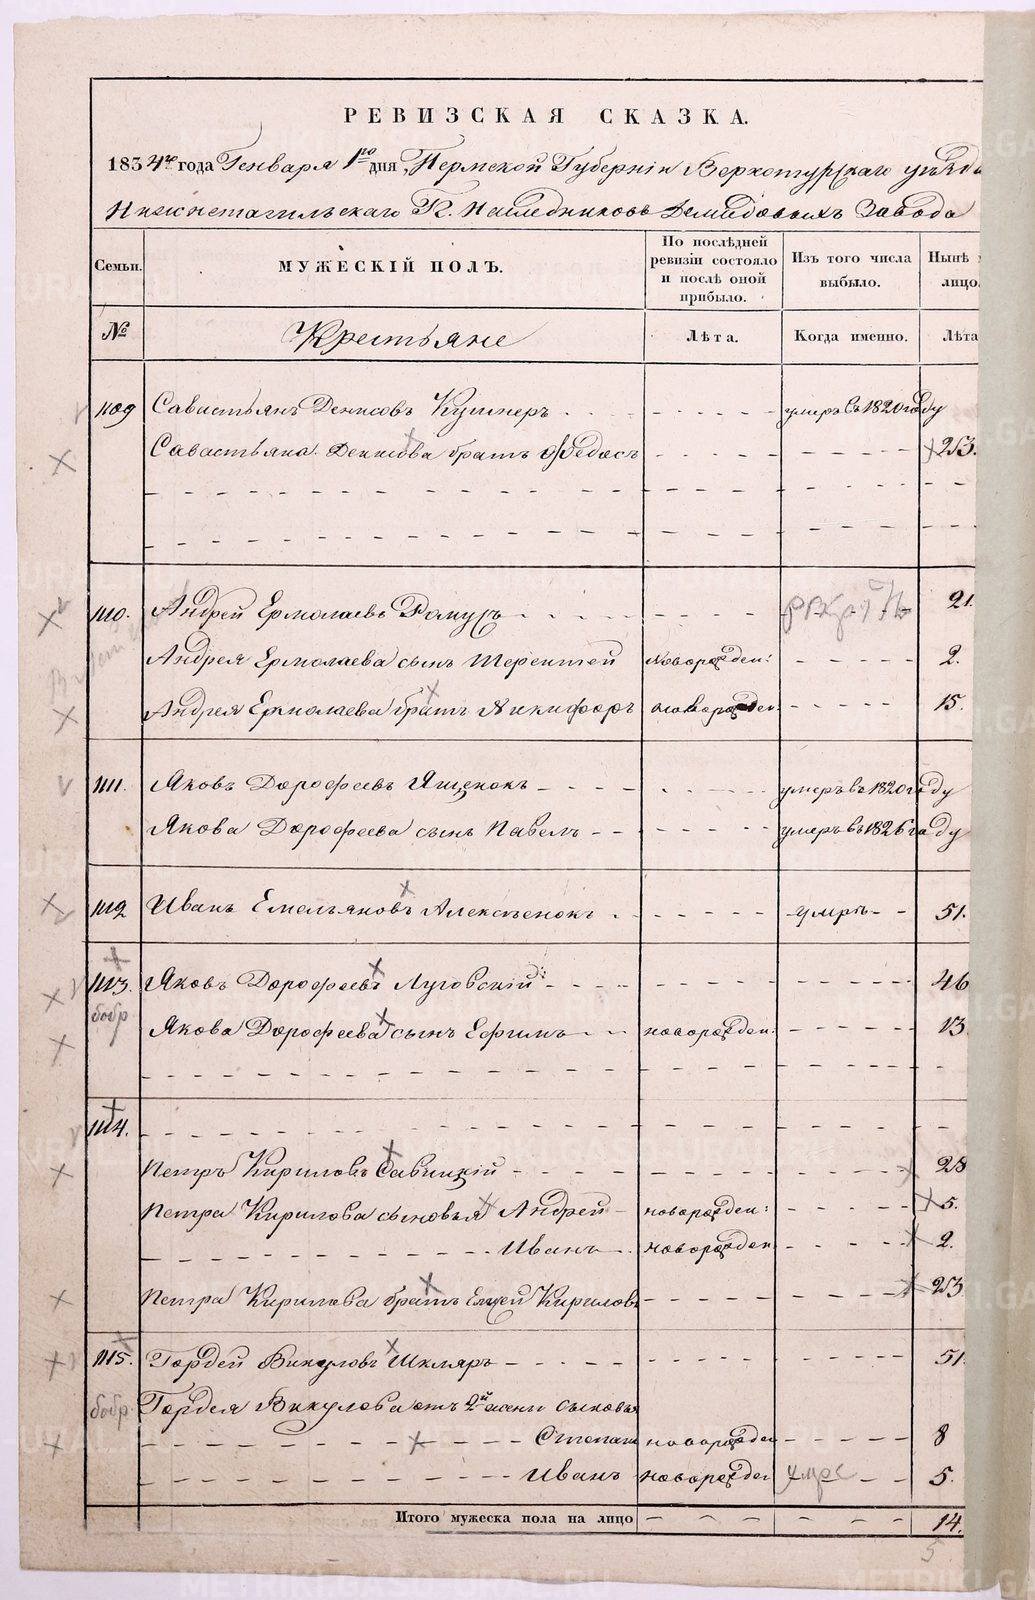 РЕВИЗСКАЯ СКАЗКА.
1834го года Генваря 1го дня, Пермской Губернiи Верхотурскаго уѣзда
Нижнетагильскаго Гг. Наследниковъ Демидовыхъ Завода
Семьи. МУЖЕСКIЙ ПОЛЪ. По послѣдней ревизiи состояло и послѣ оной прибыло. Изъ того числа выбыло. Нынѣ лицо.
№ Крестьяне Лѣта. Когда именно. Лѣта
1109 Савастьянъ Денисовъ Кушнеръ умеръ въ 1820 году
Савастьяна Денисова братъ Ѳедосъ 23.
1110. Андрей Ермолаевъ Ромуръ рекрутъ 21.
Андрея Ермолаева сынъ Терентей новорожден: 2.
Андрея Ермолаева братъ Никифоръ новорожден 15.
1111. Яковъ Дорофеевъ Ященокъ умеръ въ 1820 году
Якова Дорофеева сынъ Павелъ умеръ въ 1826 году
1112 Иванъ Емельяновъ Алексѣенокъ умръ 51.
1113. Яковъ Дорофеевъ Луговскiй 46
бобр
Якова Дорофеева сынъ Ефимъ новорожден. 13.
1114.
Петръ Кириловъ Савицкiй 28
Петра Кирилова сыновья Андрей новорожден: 5.
Иванъ новорожден 2.
Петра Кирилова братъ Елисей Кириловъ 23
1115. Гордей Викуловъ Шкляръ 51.
бобр. Гордея Викулова отъ 2й жены сыновья
Степанъ новорожден 8
Иванъ новорожден умре 5.
Итого мужеска пола на лицо 14.
5
METRIKI.GASO-URAL.RU